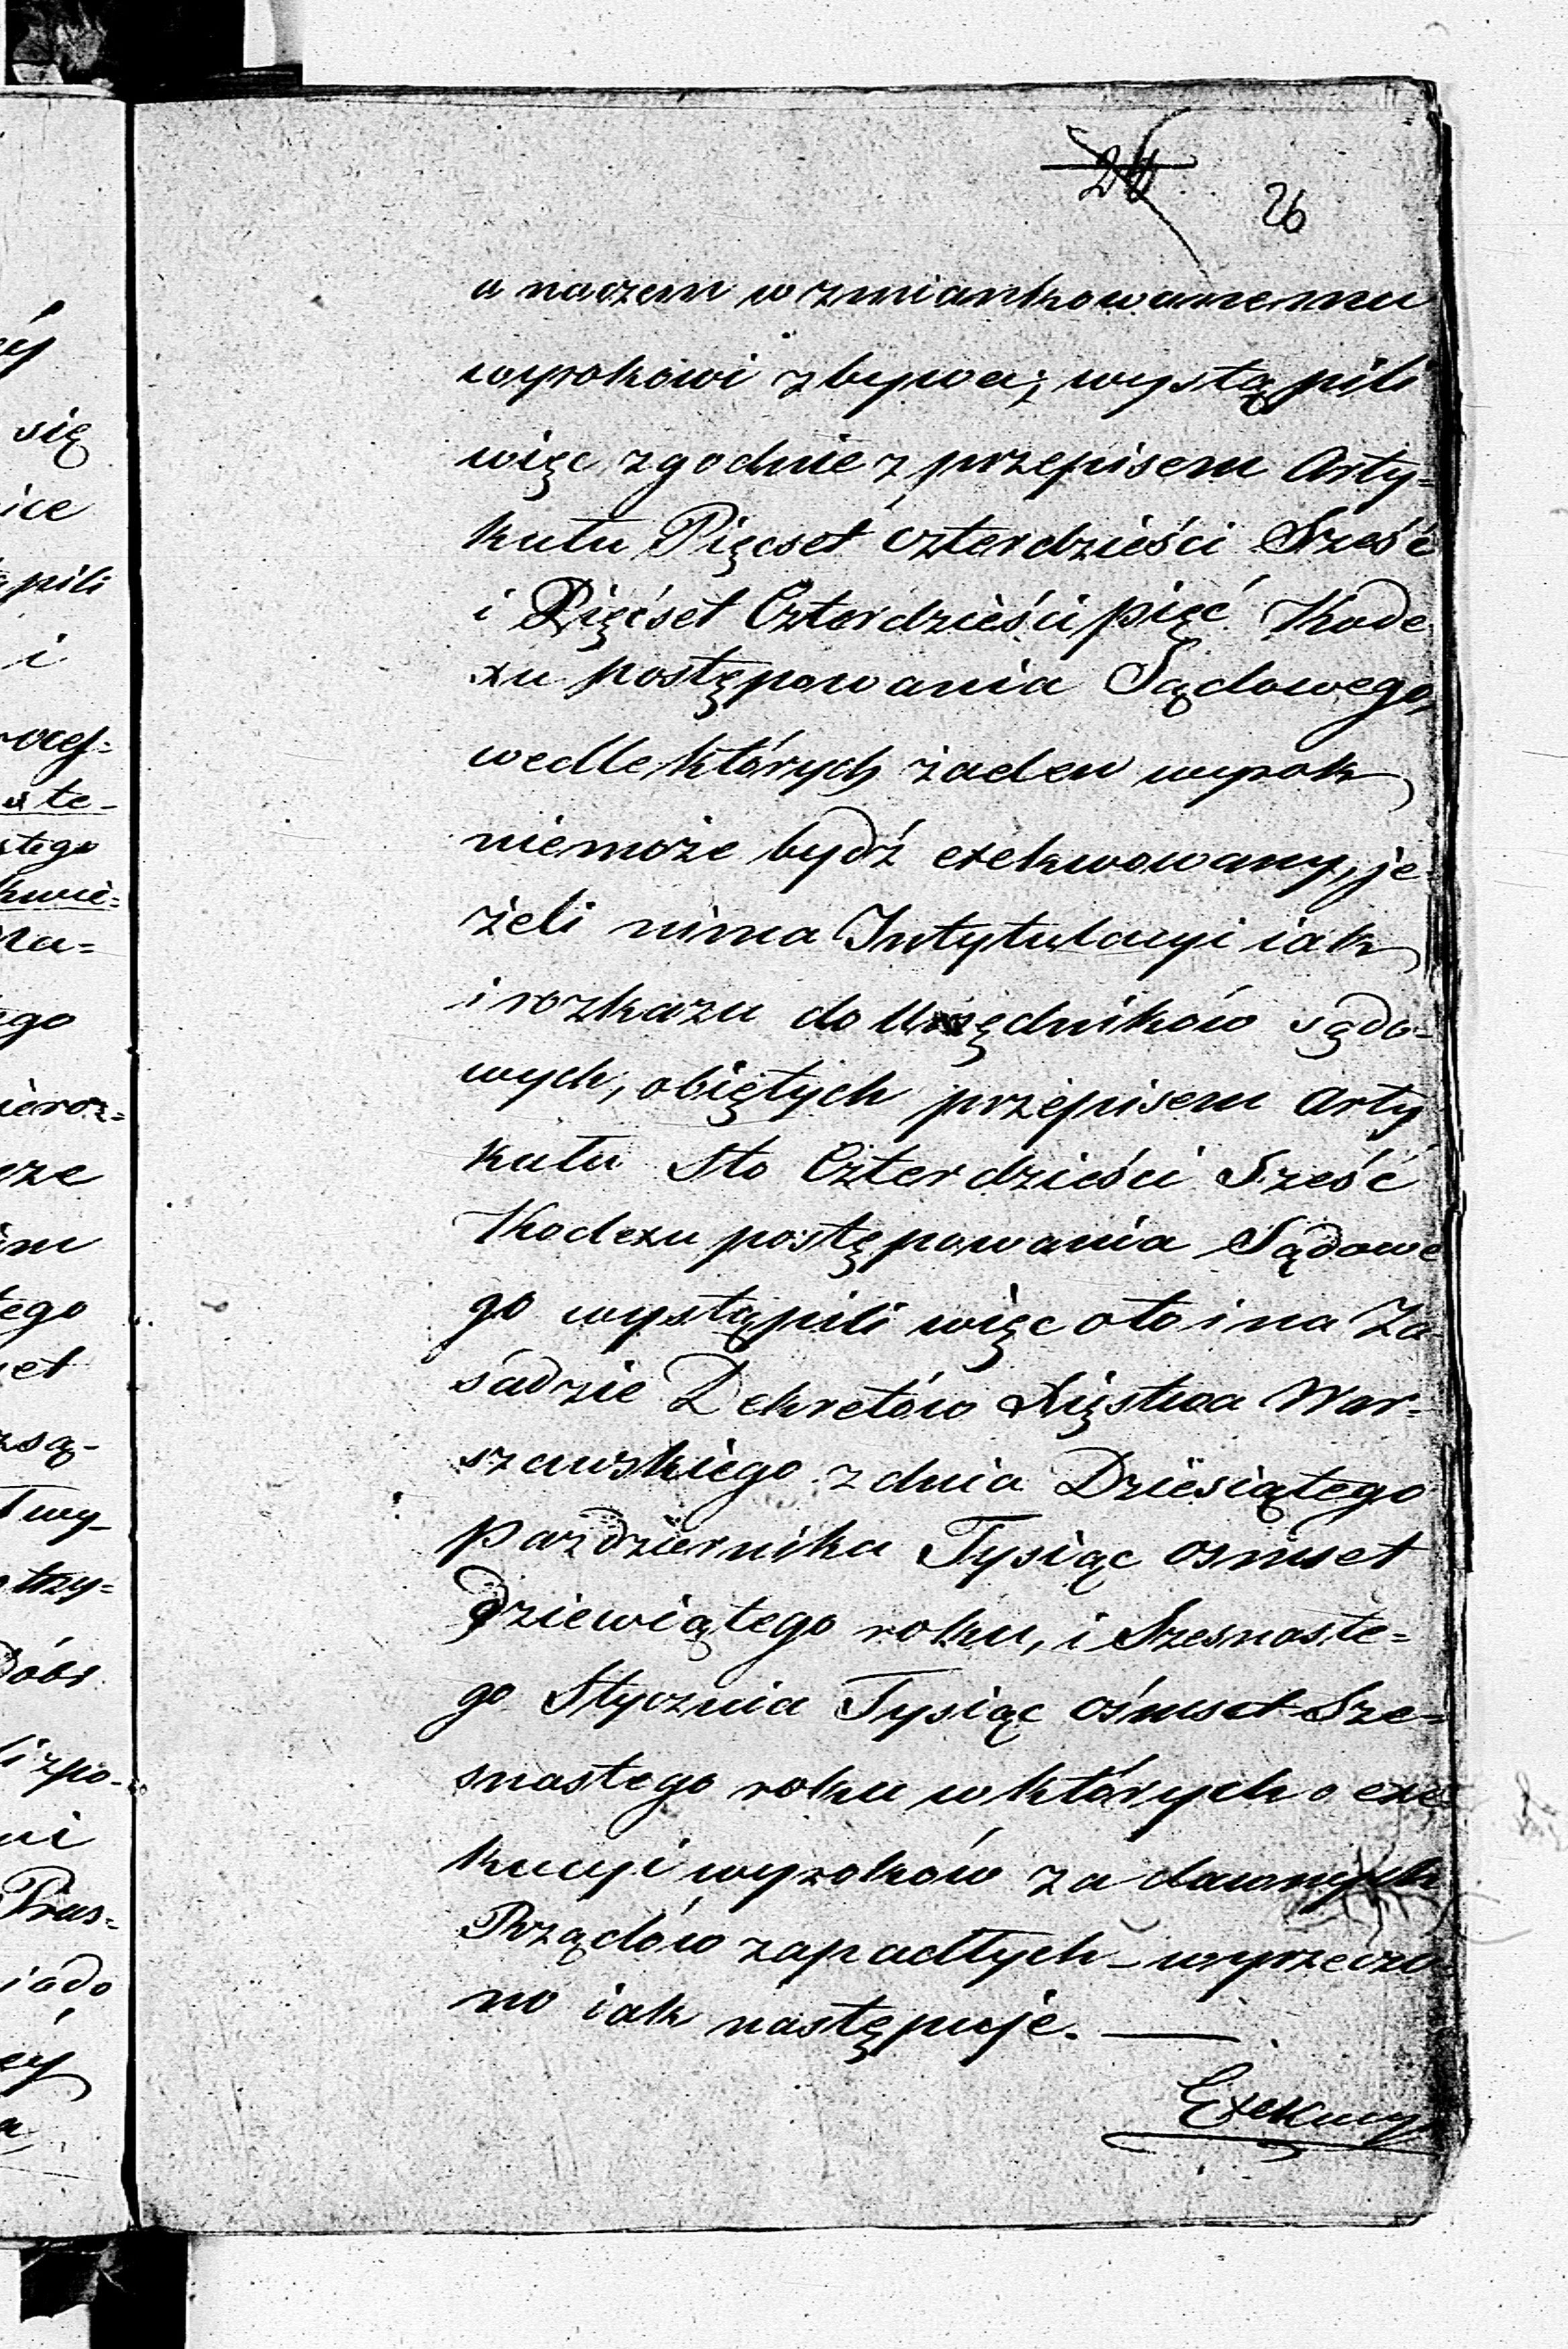 26
a naczem wzmiankowanemu
wyrokowi zbywa; wystąpili
więc zgodnie z przepisem Arty-
kułu Pięcset czterdzieści Sześć
i Pięćset Czterdzieści pięć Kode-
xu postępowania Sądowego,
wedle których żaden wyrok
niemoże bydź exekwowany, je-
żeli nima Intytulacyi iak
i rozkazu do Urzędników sądo-
wych, obiętych przepisem Arty
kułu Sto Czterdzieści Sześć
Kodexu postępowania Sądowe
go wystąpili więc oto i na Za-
sadzie Dekretów Xięstwa War-
szawskiego z dnia Dziesiątego
pazdziernika Tysiąc osmset
dziewiątego roku, i Szesnaste-
go Stycznia Tysiąc ośmset Sze-
snastego roku w których o exe-
kucyi wyroków za dawnych
Rządów zapadłych – wyrzeczo-
no iak następuje. —
Exekucy
się
ice
pili
i
te-
stego
kwie-
ego
rze
im
tego
set
wy-
trzy-
dóbr
Prus-